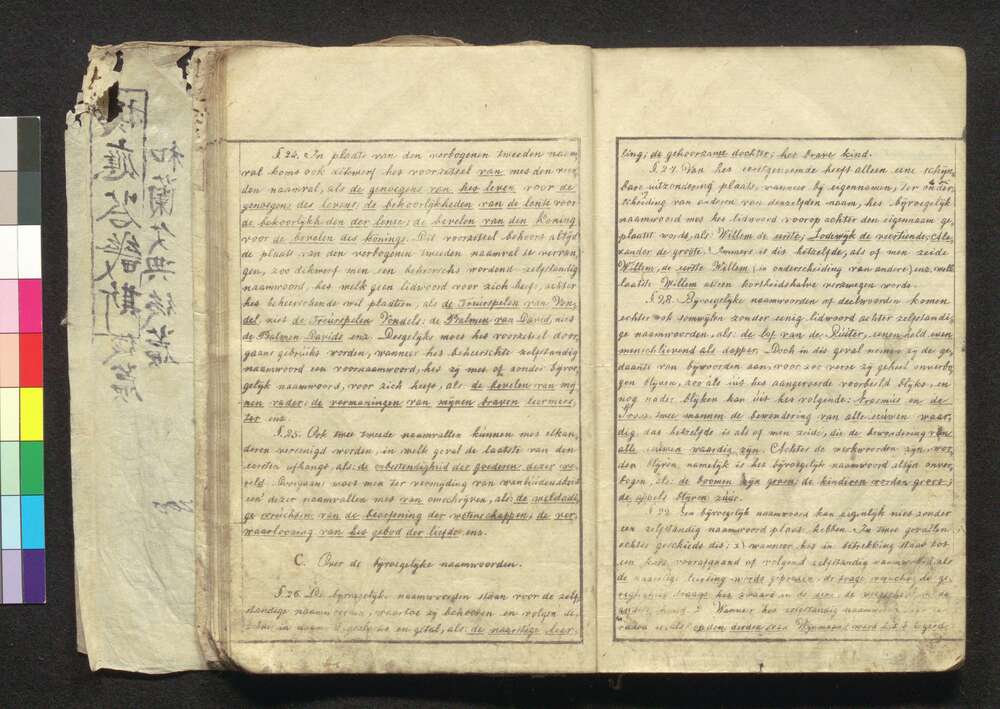 § 24. In plaats van den verbogenen tweeden naam,
val komt ook dikwerf het voorzetsel van met den vier,
den naamval, als de genoegens van het leven voor de
genoegens des levens; de bekoorlykheden van de lente voor
de bekoorlykheden der lente; de bevelen van den Koning
voor de bevelen des Konings. Dit voorzetsel behoort altyd
de plaats van den verbogenen tweeden naamval te vervan,
gen, zoo dikwerf men een beheerscht wordend zelfstandig
naamwoord, het welk geen lidwoord voor zich heeft, achter
het beheerschende wil plaatsen, als de Treurspelen van Von,
del, niet de Treurspelen Vondels: de Psalmen van David, niet
de Psalmen Davids enz. Desgelyks moet het voorzetsel door,
gaans gebruikt worden, wanneer het beheerschte zelfstandig
naamwoord een voornaamwoord, het zy met of zonder byvoe,
gelyk naamwoord, voor zich heeft, als: de bevelen van my
nen vader; de vermaningen van mynen braven leermees,
ter enz.
§ 25. Ook twee tweede naamvallen kunnen met elkan,
deren vereenigd worden, in welk geval de laatste van den
eersten afhangt, als: de onbestendigheid der goederen dezer we,
reld. Overigens moet men ter vermyding van wanluidendheid
een dezer naamvallen met van omschryven, als: de weldadi,
ge verrichten van de beoefening der wetenschappen; de ver,
waarloozing van het gebod der liefde enz.
C. Over de byvoegelyke naamwoorden.
§ 26. De byvoegelyke naamwoorden staan voor de zelf,
standige naamwoorden, waartoe zy behooren en volgen de,
zelve in naamval, geslacht en getal, als: de naarstige leer,
ling; de gehoorzame dochter; het brave kind.
§ 27. Van het eerstgenoemde heeft alleen eene schyn,
bare uitzondering plaats, wanneer by eigennamen, ter onder,
scheiding van anderen van denzelfden naam, het byvoegelyk
naamwoord met het lidwoord voorop achter den eigennaam ge,
plaatst wordt, als: Willem de eerste; Lodewyk de veertiende; Ale,
xander de groote. Immers is dit hetzelfde, als of men zeide
Willem, de eerste Willem (in onderscheiding van andere) enz. welk
laatste Willem alleen kortheidshalve verzwegen wordt.
§ 28. Byvoegelyke naamwoorden of deelwoorden komen
echter ook somwylen zonder eenig lidwoord achter zelfstandi,
ge naamwoorden als: de lof van de Ruiter, eenen held even
menschlievend als dapper. Doch in dit geval nemen zy de ge,
daante van bywoorden aan, voor zoo verre zy geheel onverbo,
gen blyven, zoo als uit het aangevoerde voorbeeld blykt, en
nog nader blyken kan uit het volgende: Erasmus en de
Groot twee mannen de bewondering van alle eeuwen waar,
dig, dat hetzelfde is als of men zeide, die de bewondering van
alle eeuwen waardig zyn. Achter de werkwoorden zyn, wor,
den blyven namelyk is het byvoegelyk naamwoord altyd onver,
bogen, als: de boomen zyn groen; de kinderen worden groot;
de appels blyven zuur.
§ 29. Een byvoegelyk naamwoord kan eigenlyk niet zonder
een zelfstandig naamwoord plaats hebben. In twee gevallen
echter geschiedt dit: 1) wanneer het in betrekking staat tot
een kort voorafgaand of volgend zelfstandig naamwoord als
de naarstige leerling wordt geprezen, de trage
2 Wanneer het zelfstandig naamwoord